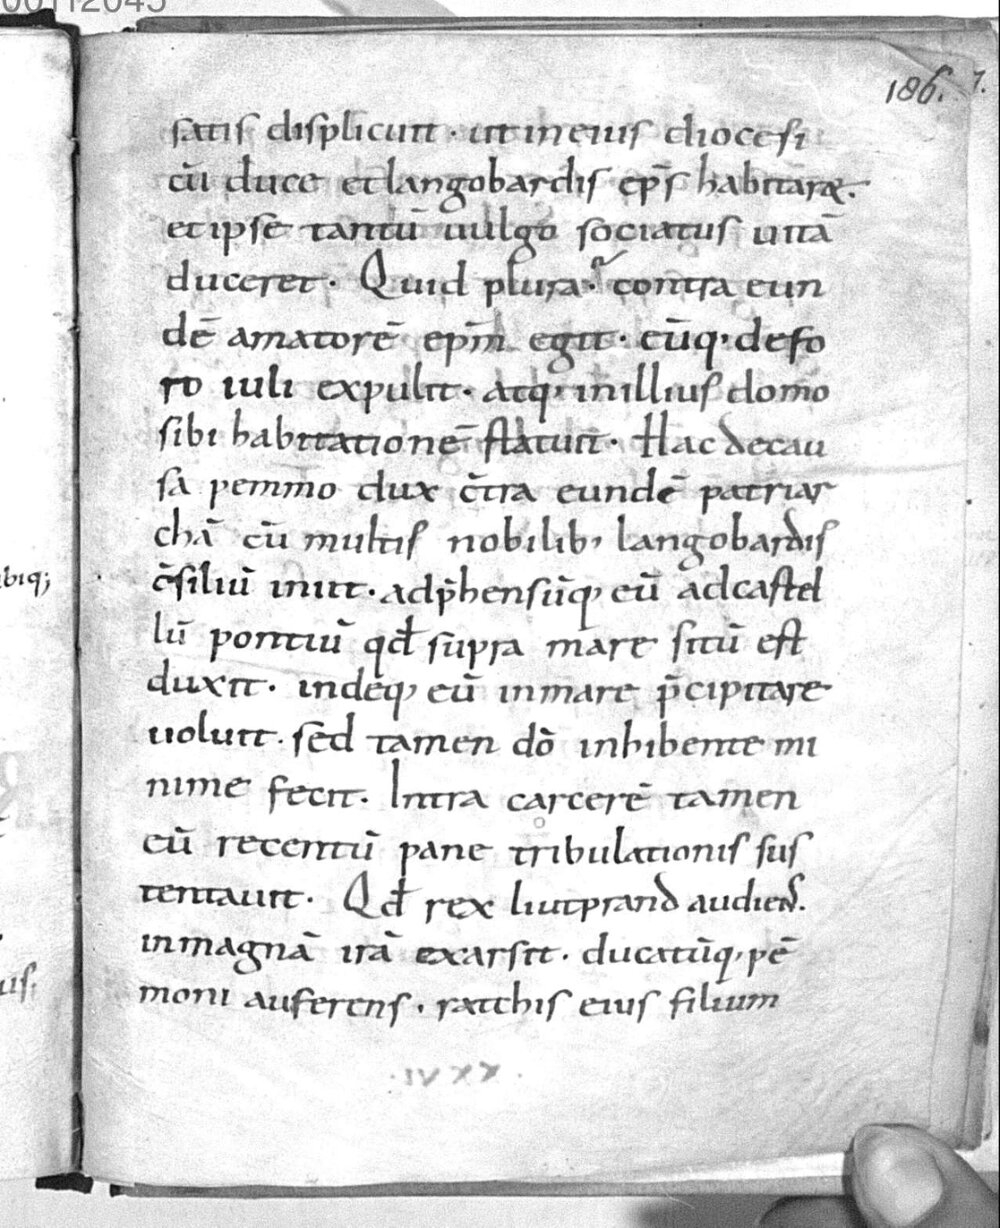 00112045
186. 7.
satis displicuit · ut in eius diocesi
cū duce et langobardis ep̄s habitar&.
et ipse tantū uulgo sociatus uitā
duceret · Quid plura · contra eun
dē amatorē ep̄m egit · eūq· de fo
ro iuli expulit · atq· in illius domo
sibi habitationē statuit · Hac de cau
sa pemmo dux c̄tra eundē patriar
chā cū multis nobilib, langobardis
c̄siliū iniit · adp̄hensūq, eū ad castel
lū pontiū qđ supra mare sitū est
duxit · indeq, eū in mare p̄cipitare
uoluit · sed tamen dō inhibente mi
nime fecit · Intra carcerē tamen
eū retentū pane tribulationis sus
tentauit · Qđ rex liutprand audiens.
in magnā irā exarsit · ducatūq, pē
moni auferens · ratchis eius filium
· IVXX ·
biq;
us.